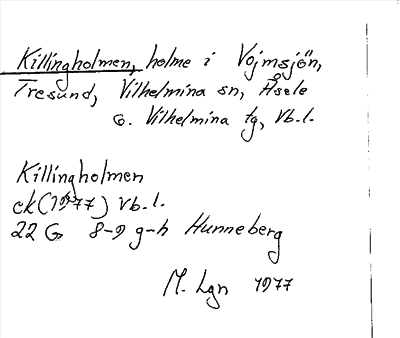 Killingholmen, holme i Vojmsjön,
Tresund, Vilhelmina sn, Åsele
o. Vilhelmina tg, Vb.l.
Killingholmen
ek (1977) Vb.l.
22 G 8-9 g-h Hunneberg
M. Lgn 1977